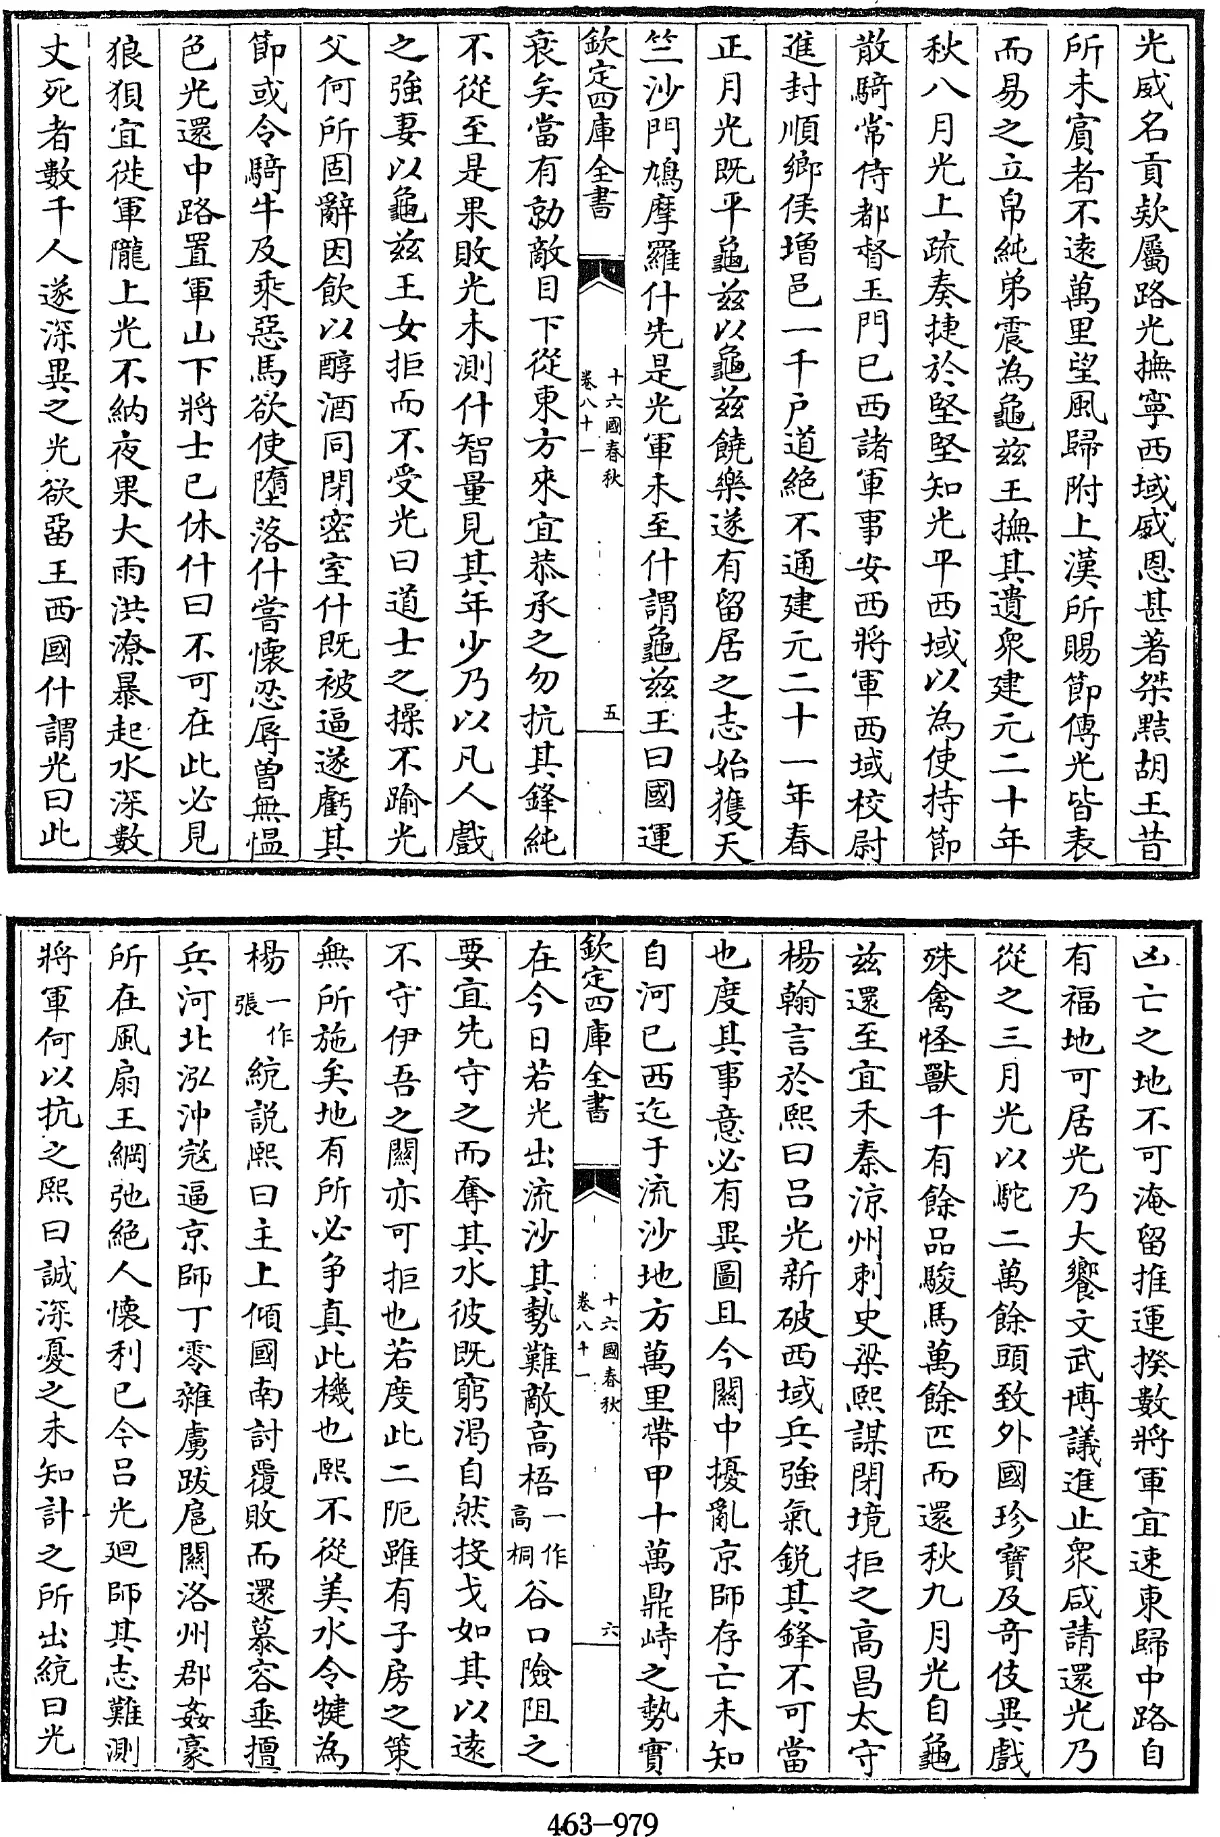 光威名貢欵屬路光撫寧西域威恩甚著桀黠胡王昔
所未賔者不遠萬里望風歸附上漢所賜節傳光皆表
而易之立帛純弟震為龜兹王撫其遺衆建元二十年
秋八月光上疏奏捷於堅堅知光平西域以為使持節
散騎常侍都督玉門已西諸軍事安西將軍西域校尉
進封順鄉侯増邑一千户道絶不通建元二十一年春
正月光既平龜兹以龜兹饒樂遂有留居之志始獲天
竺沙門鳩摩羅什先是光軍未至什謂龜兹王曰國運
欽定四庫全書
十六國春秋
卷八十一
五
衰矣當有勍敵目下從東方來宜恭承之勿抗其鋒純
不從至是果敗光未測什智量見其年少乃以凡人戲
之強妻以龜兹王女拒而不受光曰道士之操不踰光
父何所固辭因飲以醇酒同閉密室什既被逼遂虧其
節或令騎牛及乘惡馬欲使墮落什嘗懷忍辱曽無愠
色光還中路置軍山下將士已休什曰不可在此必見
狼狽宜徙軍隴上光不納夜果大雨洪潦暴起水深數
丈死者數千人遂深異之光欲留王西國什謂光曰此
凶亡之地不可淹留推運揆數將軍宜速東歸中路自
有福地可居光乃大饗文武博議進止衆咸請還光乃
從之三月光以駝二萬餘頭致外國珍寶及奇伎異戲
殊禽怪獸千有餘品駿馬萬餘匹而還秋九月光自龜
兹還至宜禾秦涼州刺史梁熙謀閉境拒之高昌太守
楊翰言於熙曰吕光新破西域兵強氣鋭其鋒不可當
也度其事意必有異圖且今關中擾亂京師存亡未知
自河已西迄于流沙地方萬里帶甲十萬鼎峙之勢實
欽定四庫全書
十六國春秋
卷八十一
六
在今日若光出流沙其勢難敵高梧一作高桐谷口險阻之
要宜先守之而奪其水彼既窮渴自然投戈如其以遠
不守伊吾之關亦可拒也若度此二阨雖有子房之策
無所施矣地有所必争真此機也熙不從美水令犍為
楊一作張統説熙曰主上傾國南討覆敗而還慕容垂擅
兵河北泓沖寇逼京師丁零雜虜跋扈關洛州郡姦豪
所在風扇王綱弛絶人懷利已今吕光廻師其志難測
將軍何以抗之熙曰誠深憂之未知計之所出統曰光
463-979